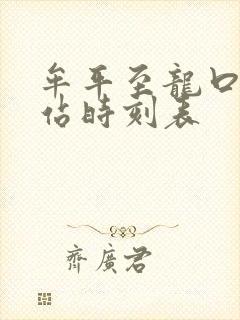 牟平至龍口
佔時刻表
齊廣君